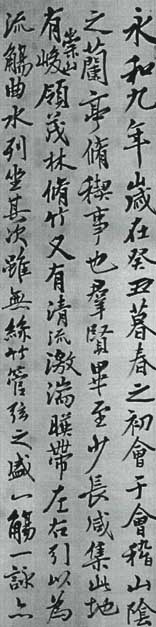 永和九年歲在癸丑暮春之初會于會稽山陰
之蘭亭脩稧事也羣賢畢至少長咸集此地
有崇山峻領茂林脩竹又有清流激湍暎帶左右引以為
流觴曲水列坐其次雖無絲竹管弦之盛一觴一詠亦